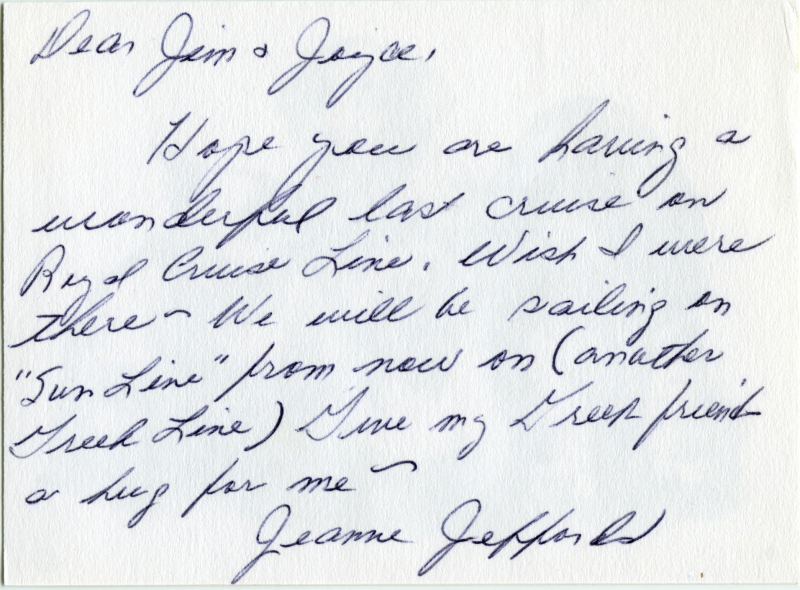 Dear Jim & Joyce,
Hope you are having a
wonderful last cruise on
Royal Cruise Line. Wish I were
there - We will be sailing on
"Sun Line" from now on (another
Greek Line) Give my Greek friend
a hug for me -
Jeanne Jeffords